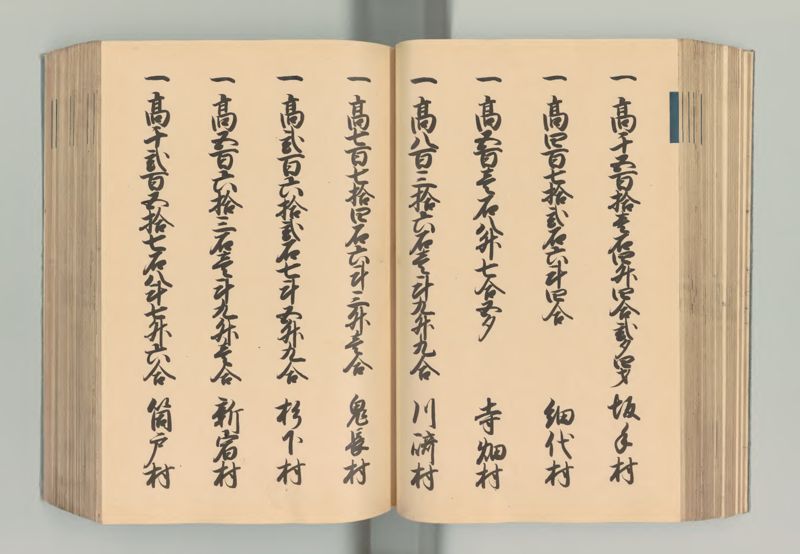 一高千五百拾壱石四升四合弐夕四才 坂手村
一高四百七拾弐石六斗四合 細代村
一高五百壱石八升七合五夕 寺畑村
一高八百三拾六石壱斗九升九合 川崎村
一高七百七拾四石六斗三升壱合 鬼長村
一高弐百六拾弐石七斗五升九合 杉下村
一高五百六拾三石壱斗九升壱合 新宿村
一高千弐百五拾七石八斗七升六合 筒戸村